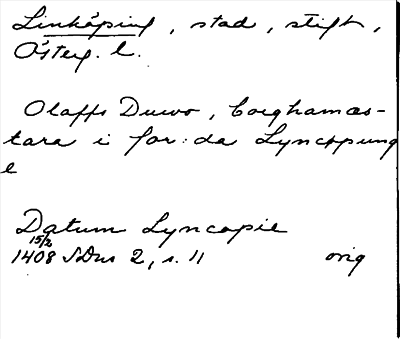 Linköping, stad, stift,
Österg. l.
Olaffs Duwo, borghamæs-
tara i for: da Lyncøpung
e
Datum Lyncopie
15/2
1408 SDns 2, s. 11 orig